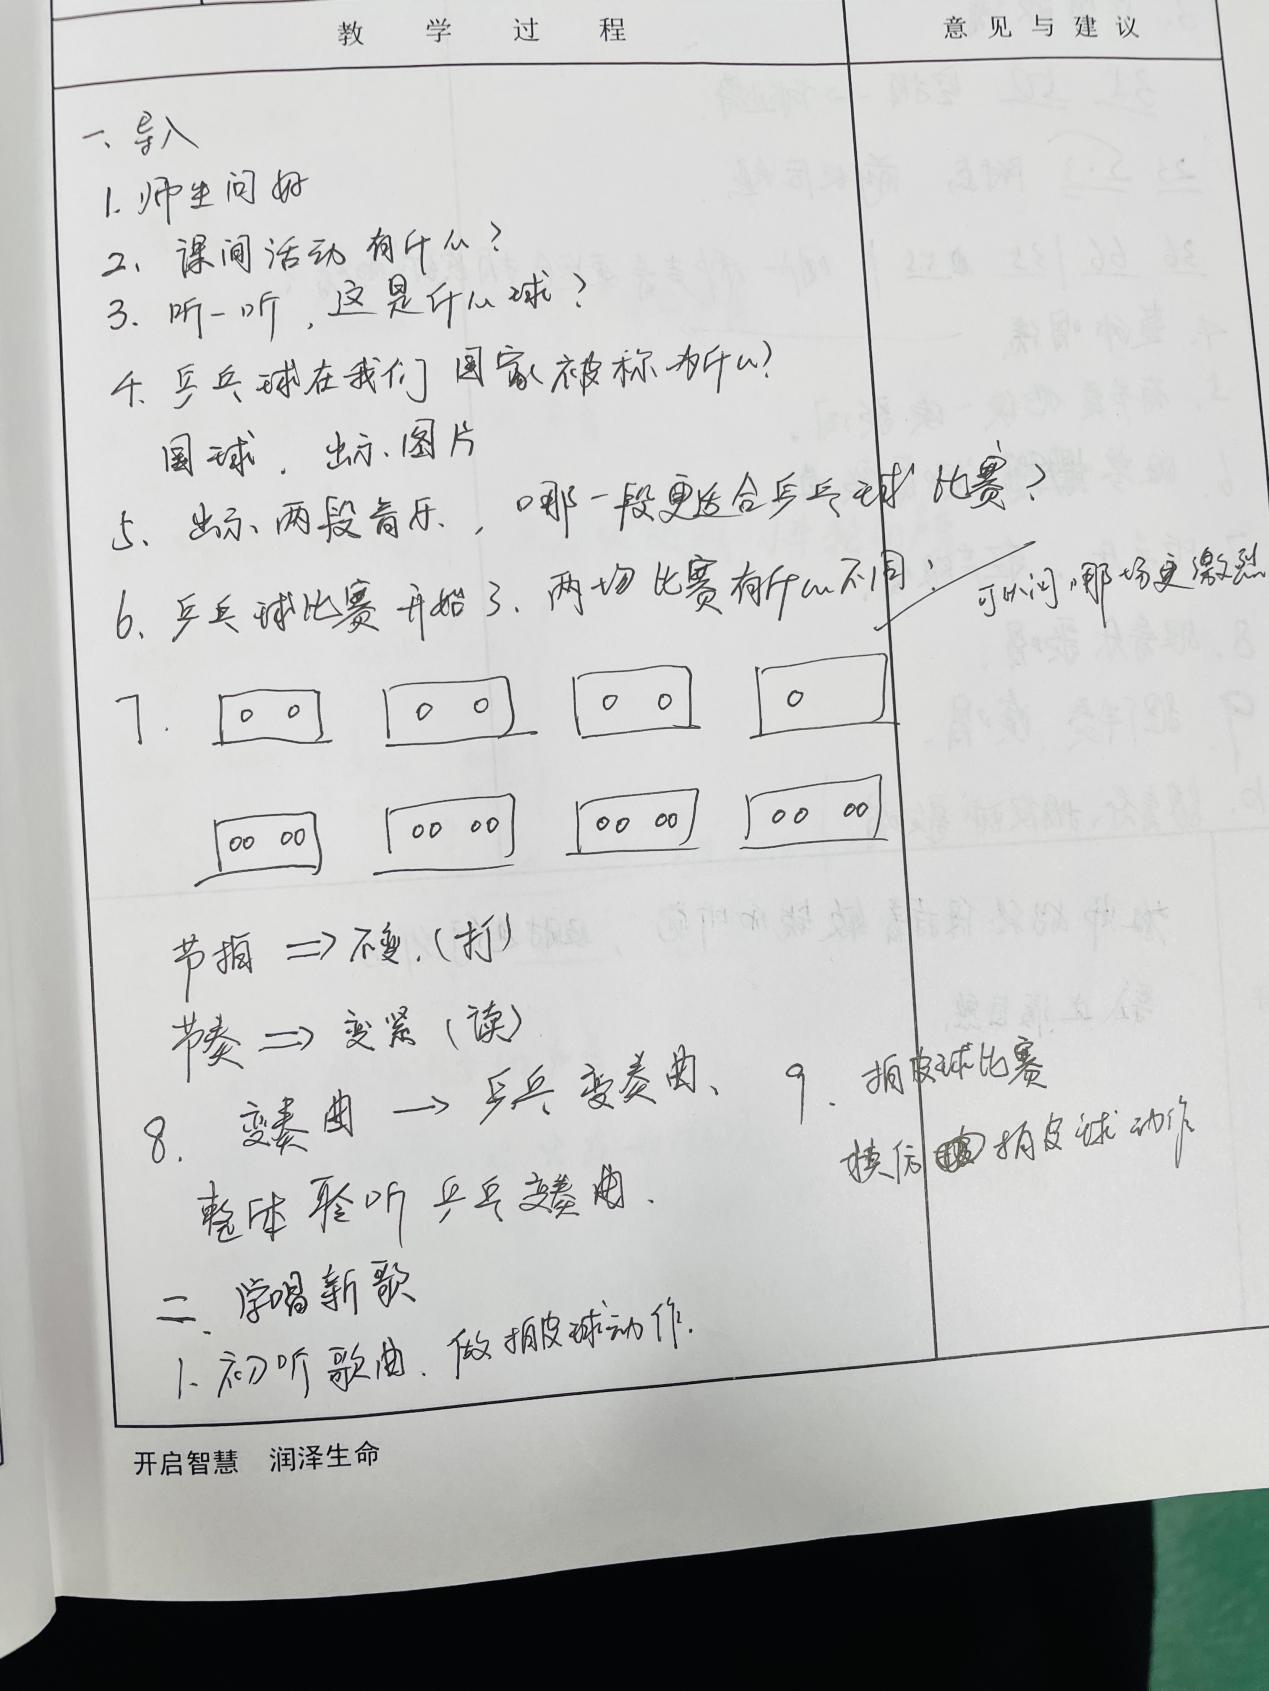 教学过程
意见与建议
一、导入
1. 师生问好
2、课间活动有什么？
3. 听一听，这是什么球？
4. 乒乓球在我们国家被称为什么？
国球．出示图片
5、出示两段音乐，哪一段更适合乒乓球比赛？
6、乒乓球比赛开始了．两场比赛有什么不同？
可以问哪场更激烈
7.
节拍 => 不变．(打)
节奏 => 变紧 (读)
8. 变奏曲 → 乒乓变奏曲、
整体聆听乒乓变奏曲．
9. 拍皮球比赛
模仿拍皮球动作
二、学唱新歌
1. 初听歌曲．做拍皮球动作．
开启智慧 润泽生命